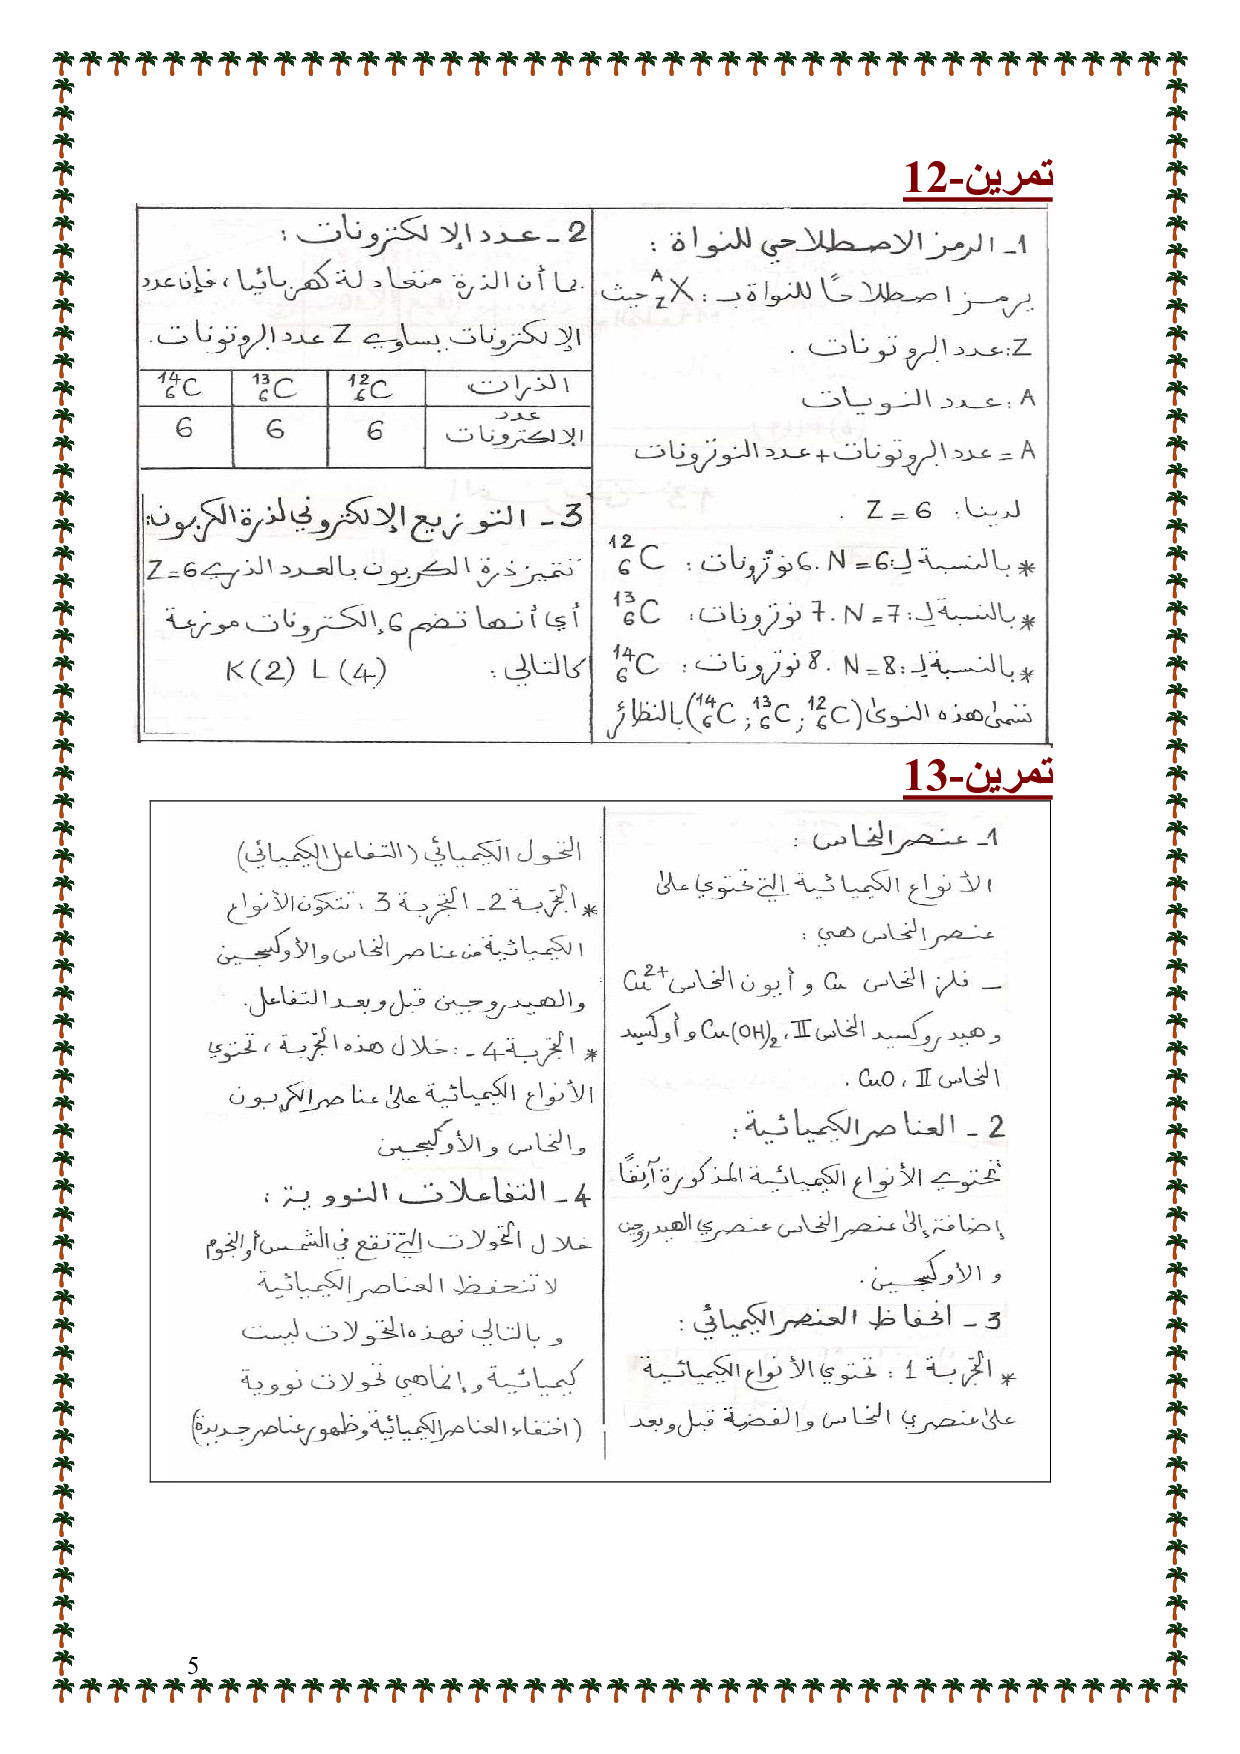 تمرين-12
1- الرمز الاصطلاحي للنواة :
يرمز اصطلاحًا للنواة بـ : ᴬ_ZX حيث
Z: عدد البروتونات .
A : عدد النويات
A = عدد البروتونات + عدد النوترونات
لدينا: Z = 6 .
* بالنسبة لـ : ¹²₆C : N = 6 . 6 نوترونات
* بالنسبة لـ : ¹³₆C : N = 7 . 7 نوترونات
* بالنسبة لـ : ¹⁴₆C : N = 8 . 8 نوترونات
تسمى هذه النوى (¹²₆C ; ¹³₆C ; ¹⁴₆C) بالنظائر
2 - عدد الإلكترونات :
بما أن الذرة متعادلة كهربائيا ، فإن عدد
الإلكترونات يساوي Z عدد البروتونات.
الذرات ¹²₆C ¹³₆C ¹⁴₆C
عدد
الإلكترونات 6 6 6
3 - التوزيع الإلكتروني لذرة الكربون:
تتميز ذرة الكربون بالعدد الذري Z=6
أي أنها تضم 6 إلكترونات موزعة
كالتالي : K(2) L(4)
تمرين-13
1- عنصر النحاس :
الأنواع الكيميائية التي تحتوي على
عنصر النحاس هي :
- فلز النحاس Cu و أيون النحاس Cu²⁺
و هيدروكسيد النحاس II ، Cu(OH)₂ و أوكسيد
النحاس II ، CuO .
2 - العناصر الكيميائية :
تحتوي الأنواع الكيميائية المذكورة آنفًا
إضافة إلى عنصر النحاس عنصري الهيدروجين
و الأوكسجين .
3 - انحفاظ العنصر الكيميائي :
* التجربة 1 : تحتوي الأنواع الكيميائية
على عنصري النحاس والفضة قبل وبعد
التحول الكيميائي (التفاعل الكيميائي)
* التجربة 2 - التجربة 3 : تتكون الأنواع
الكيميائية من عناصر النحاس والأوكسجين
والهيدروجين قبل وبعد التفاعل.
* التجربة 4 - : خلال هذه التجربة ، تحتوي
الأنواع الكيميائية على عناصر الكربون
والنحاس والأوكسجين
4 - التفاعلات النووية :
خلال التحولات التي تقع في الشمس أو النجوم
لا تنحفظ العناصر الكيميائية
و بالتالي فهذه التحولات ليست
كيميائية وإنما هي تحولات نووية
(اختفاء العناصر الكيميائية وظهور عناصر جديدة)
5